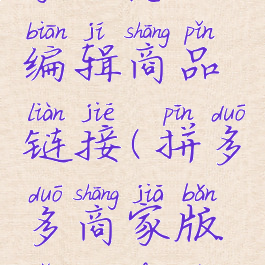 biān jí shāng pǐn
编辑商品
liàn jiē pīn duō
链接(拼多
duō shāng jiā bǎn
多商家版